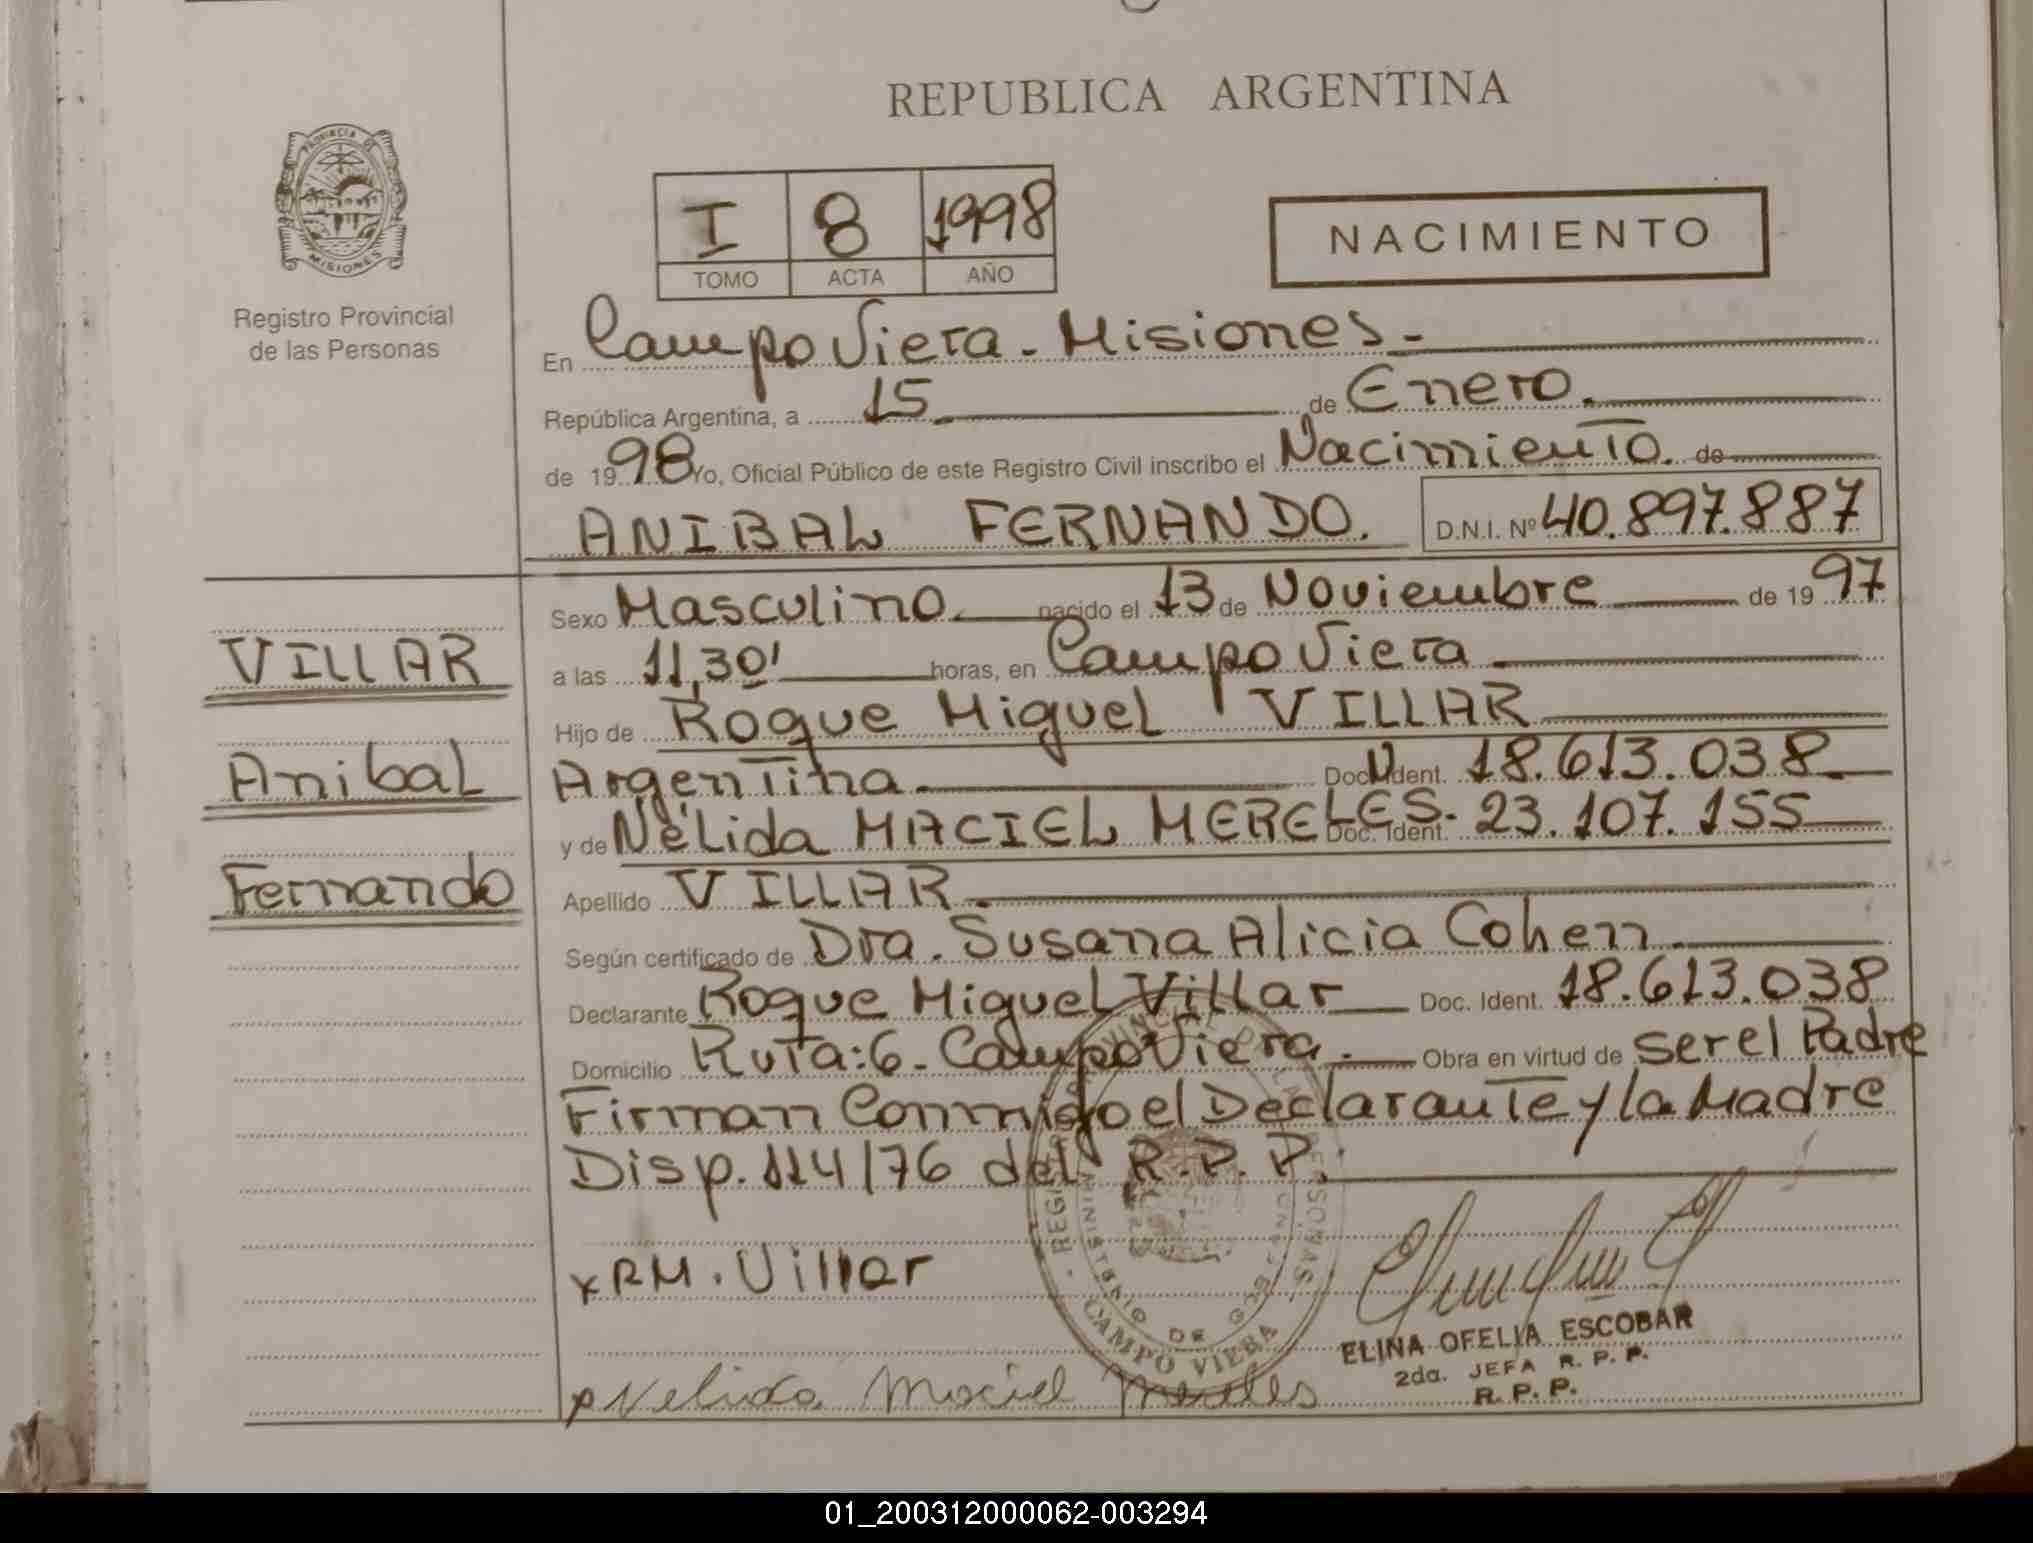 REPUBLICA ARGENTINA
PROVINCIA DE
MISIONES
Registro Provincial
de las Personas
I 8 1998
TOMO ACTA AÑO
NACIMIENTO
En Campo Viera - Misiones -
República Argentina, a 15 de Enero.
de 1998 Yo, Oficial Público de este Registro Civil inscribo el Nacimiento. de
ANIBAL FERNANDO. D.N.I. Nº 40.897.887
Sexo Masculino nacido el 13 de Noviembre de 1997
VILLAR
a las 11,30' horas, en Campo Viera
Hijo de Roque Miguel VILLAR
Anibal
Argentina. Doc. Ident. 18.613.038
y de Nélida MACIEL MERELES. Doc. Ident. 23.107.155
Fernando
Apellido VILLAR
Según certificado de Dra. Susana Alicia Cohen
Declarante Roque Miguel Villar Doc. Ident. 18.613.038
Domicilio Ruta: 6 - Campo Viera. Obra en virtud de ser el Padre
Firman Conmigo el Declarante y la Madre
Disp. 114/76 del R.P.P.
x RM. Villar
CAMPO VIERA
ELINA OFELIA ESCOBAR
2da. JEFA R. P. P.
R. P. P.
Nelida Maciel Mereles
01_200312000062-003294